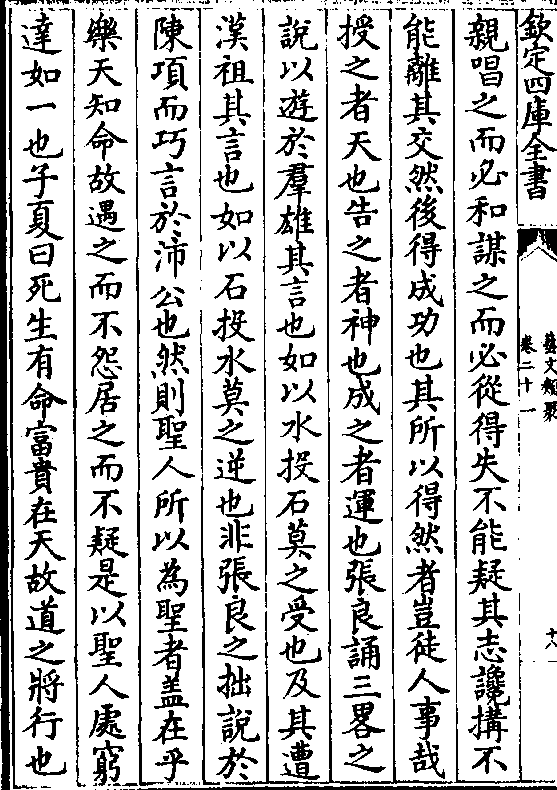 欽定四庫全書
藝文類聚
卷二十一
十八
親唱之而必和謀之而必從得失不能疑其志讒搆不
能離其交然後得成功也其所以得然者豈徒人事哉
授之者天也告之者神也成之者運也張良誦三畧之
說以遊於羣雄其言也如以水投石莫之受也及其遭
漢祖其言也如以石投水莫之逆也非張良之拙說於
陳項而巧言於沛公也然則聖人所以為聖者盖在乎
樂天知命故遇之而不怨居之而不疑是以聖人處窮
達如一也子夏曰死生有命富貴在天故道之將行也